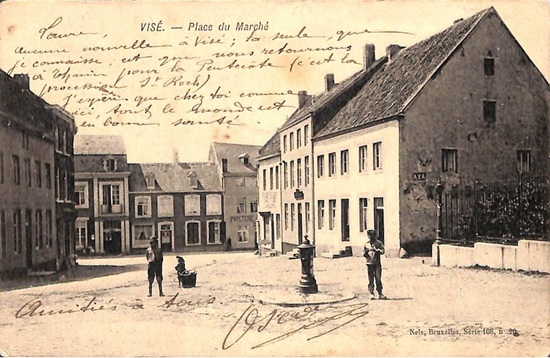 VISÉ. — Place du Marché
Laure,
aucune nouvelle à Visé; la seule, que
je connaisse, est que nous retournons
à Thuin pour la Pentecôte (c'est la
procession St Roch)
J'espère que chez toi comme
ici, tout le monde est
en bonne santé.
Amitiés à tous
Nels, Bruxelles, Série 108, n° 20.